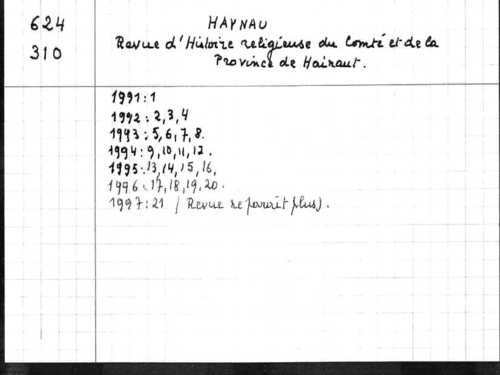 624
310
HAYNAU
Revue d'Histoire religieuse du Comté et de la
Province de Hainaut.
1991:1
1992:2,3,4
1993:5,6,7,8.
1994:9,10,11,12.
1995:13,14,15,16,
1996:17,18,19,20.
1997:21 (Revue ne paraît plus).